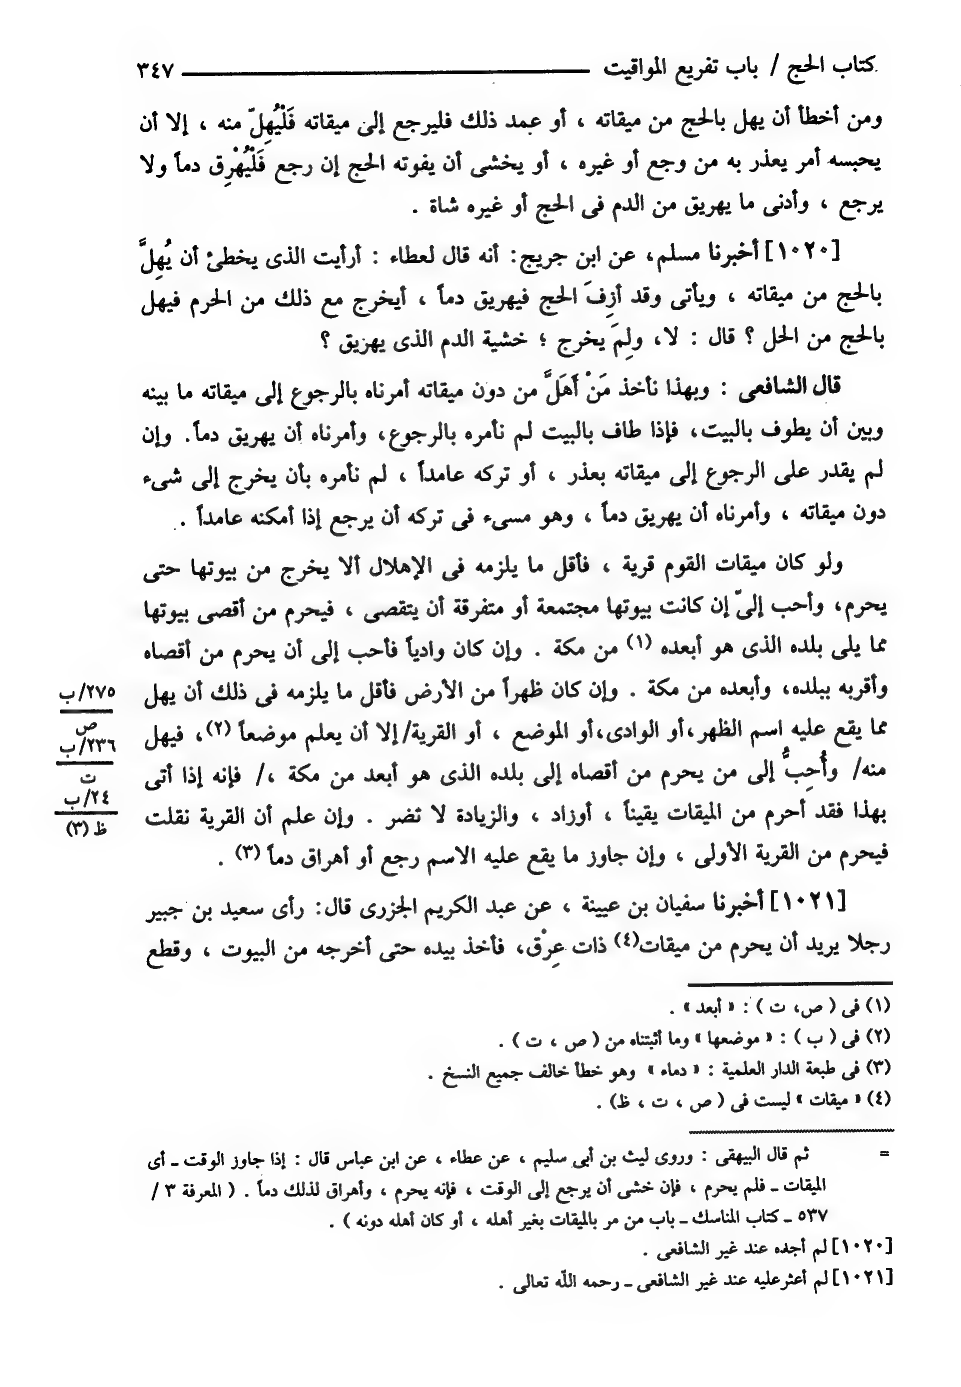 كتاب الحج / باب تفريع المواقيت ــــــ ٣٤٧
ومن أخطأ أن يهل بالحج من ميقاته ، أو عمد ذلك فليرجع إلى ميقاته فَلْيُهِلّ منه ، إلا أن
يحبسه أمر يعذر به من وجع أو غيره ، أو يخشى أن يفوته الحج إن رجع فَلْيُهْرِق دماً ولا
يرجع ، وأدنى ما يهريق من الدم فى الحج أو غيره شاة .
[١٠٢٠] أخبرنا مسلم، عن ابن جريج: أنه قال لعطاء : أرأيت الذى يخطئ أن يُهِلَّ
بالحج من ميقاته ، ويأتى وقد أزِفَ الحج فيهريق دماً ، أيخرج مع ذلك من الحرم فيهل
بالحج من الحل ؟ قال : لا، ولِمَ يخرج ؛ خشية الدم الذى يهريق ؟
قال الشافعى : وبهذا نأخذ مَنْ أَهَلَّ من دون ميقاته أمرناه بالرجوع إلى ميقاته ما بينه
وبين أن يطوف بالبيت، فإذا طاف بالبيت لم نأمره بالرجوع، وأمرناه أن يهريق دماً. وإن
لم يقدر على الرجوع إلى ميقاته بعذر ، أو تركه عامداً ، لم نأمره بأن يخرج إلى شىء
دون ميقاته ، وأمرناه أن يهريق دماً ، وهو مسىء فى تركه أن يرجع إذا أمكنه عامداً .
ولو كان ميقات القوم قرية ، فأقل ما يلزمه فى الإهلال ألا يخرج من بيوتها حتى
يحرم، وأحب إلىّ إن كانت بيوتها مجتمعة أو متفرقة أن يتقصى ، فيحرم من أقصى بيوتها
مما يلى بلده الذى هو أبعده (١) من مكة . وإن كان وادياً فأحب إلى أن يحرم من أقصاه
وأقربه ببلده، وأبعده من مكة . وإن كان ظهراً من الأرض فأقل ما يلزمه فى ذلك أن يهل
مما يقع عليه اسم الظهر،أو الوادى،أو الموضع ، أو القرية/إلا أن يعلم موضعاً (٢)، فيهل
منه/ وأُحِبُّ إلى من يحرم من أقصاه إلى بلده الذى هو أبعد من مكة ،/ فإنه إذا أتى
بهذا فقد أحرم من الميقات يقيناً ، أوزاد ، والزيادة لا تضر . وإن علم أن القرية نقلت
فيحرم من القرية الأولى ، وإن جاوز ما يقع عليه الاسم رجع أو أهراق دماً (٣) .
[١٠٢١] أخبرنا سفيان بن عيينة ، عن عبد الكريم الجزرى قال: رأى سعيد بن جبير
رجلا يريد أن يحرم من ميقات(٤) ذات عِرْق، فأخذ بيده حتى أخرجه من البيوت ، وقطع
٢٧٥/ب
ص
٢٣٦/ب
ت
٢٤/ب
ظ (٣)
(١) فى ( ص، ت ) : « أبعد » .
(٢) فى ( ب ) : « موضعها » وما أثبتناه من ( ص ، ت ) .
(٣) فى طبعة الدار العلمية : « دماء » وهو خطأ خالف جميع النسخ .
(٤) « ميقات » ليست فى ( ص ، ت ، ظ) .
= ثم قال البيهقى : وروى ليث بن أبى سليم ، عن عطاء ، عن ابن عباس قال : إذا جاوز الوقت ـ أى
الميقات ـ فلم يحرم ، فإن خشى أن يرجع إلى الوقت ، فإنه يحرم ، وأهراق لذلك دماً . ( المعرفة ٣ /
٥٣٧ ـ كتاب المناسك ـ باب من مر بالميقات بغير أهله ، أو كان أهله دونه ) .
[١٠٢٠] لم أجده عند غير الشافعى .
[١٠٢١] لم أعثرعليه عند غير الشافعى ـ رحمه اللّه تعالى .